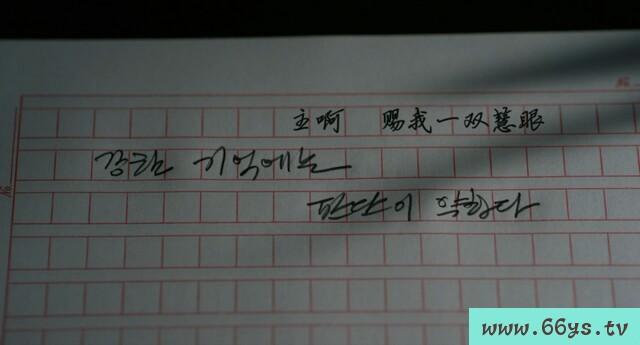 主啊 赐我一双慧眼
강한 기억에는
판단이 약하다
www.66ys.tv